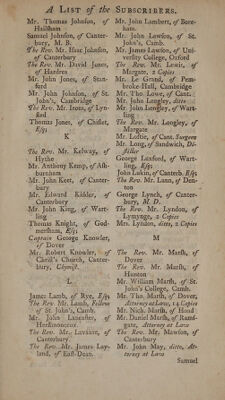 A List of the Subscribers.
Mr. Thomas Johnson, of
Hailsham
Samuel Johnson, of Canter-
bury, M. B.
The Rev. Mr. Isaac Johnson,
of Canterbury
The Rev. Mr. David Jones,
of Hardres
Mr. John Jones, of Stan-
ford
Mr. John Johnson, of St.
John's, Cambridge
The Rev. Mr. Irons, of Lyn-
sted
Thomas Jones, of Chislet,
Esq;
K
The Rev. Mr. Kelway, of
Hythe
Mr. Anthony Kemp, of Ash-
burnham
Mr. John Keet, of Canter-
bury
Mr. Edward Kidder, of
Canterbury
Mr. John King, of Wart-
ling
Thomas Knight, of God-
mersham, Esq;
Captain George Knowler,
of Dover
Mr. Robert Knowler, of
Christ's Church, Canter-
bury, Chymist.
L
James Lamb, of Rye, Esq;
The Rev. Mr. Lamb, Fellow
of St. John's, Camb.
Mr. John Lancaster, of
Herstmonceux
The Rev. Mr. of
Canterbury
The Rev. Mr. James Lay-
land, of East-Dean.
Mr. John Lambert, of Bore-
ham.
Mr. John Lawson, of St.
John's, Camb.
Mr. James Lawson, of Uni-
versity College, Oxford
The Rev. Mr. Lewis, of
Margate, 2 Copies
Mr. Le Grand, of Pem-
broke-Hall, Cambridge
Mr. Tho. Lowe, of Cant.
Mr. John Longley, ditto
Mr. John Longley, of Wart-
ling
The Rev. Mr. Longley, of
Margate
Mr. Loftie, of Cant. Surgeon
Mr. Long, of Sandwich, Di-
stiller
George Luxford, of Wart-
ling, Esq;
John Lukin, of Canterb. Esq;
The Rev. Mr. Lunn, of Den-
ton
George Lynch, of Canter-
bury, M. D.
The Rev. Mr. Lyndon, of
Lymynge, 2 Copies
Mrs. ditto, 2 Copies
M
The Rev. Mr. Marsh, of
Dover
The Rev. Mr. Marsh, of
Hunton
Mr. William Marsh, of St.
John's College, Camb.
Mr. Tho. Marsh, of Dover,
Attorney at Law, 14 Copies
Mr. Nich. Marsh, of Hond
Mr. Daniel Marsh, of Rams-
gate, Attorney at Law
The Rev. Mr. Mawson, of
Canterbury
Mr. John May, ditto, At-
torney at Law
Samuel